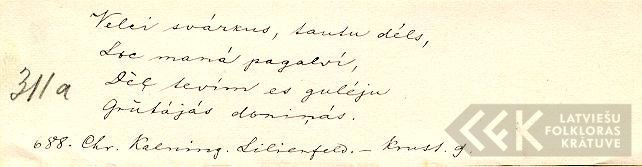 Velci svárkus, tautu déls,
Loc maná pagalví,
Dēļ tevim es guléju
Grūtájás domiņás.
311a
688. Chr. Kalning. Lilienfeld. — Krust. g.
LATVIEŠU
FOLKLORAS
KRĀTUVE